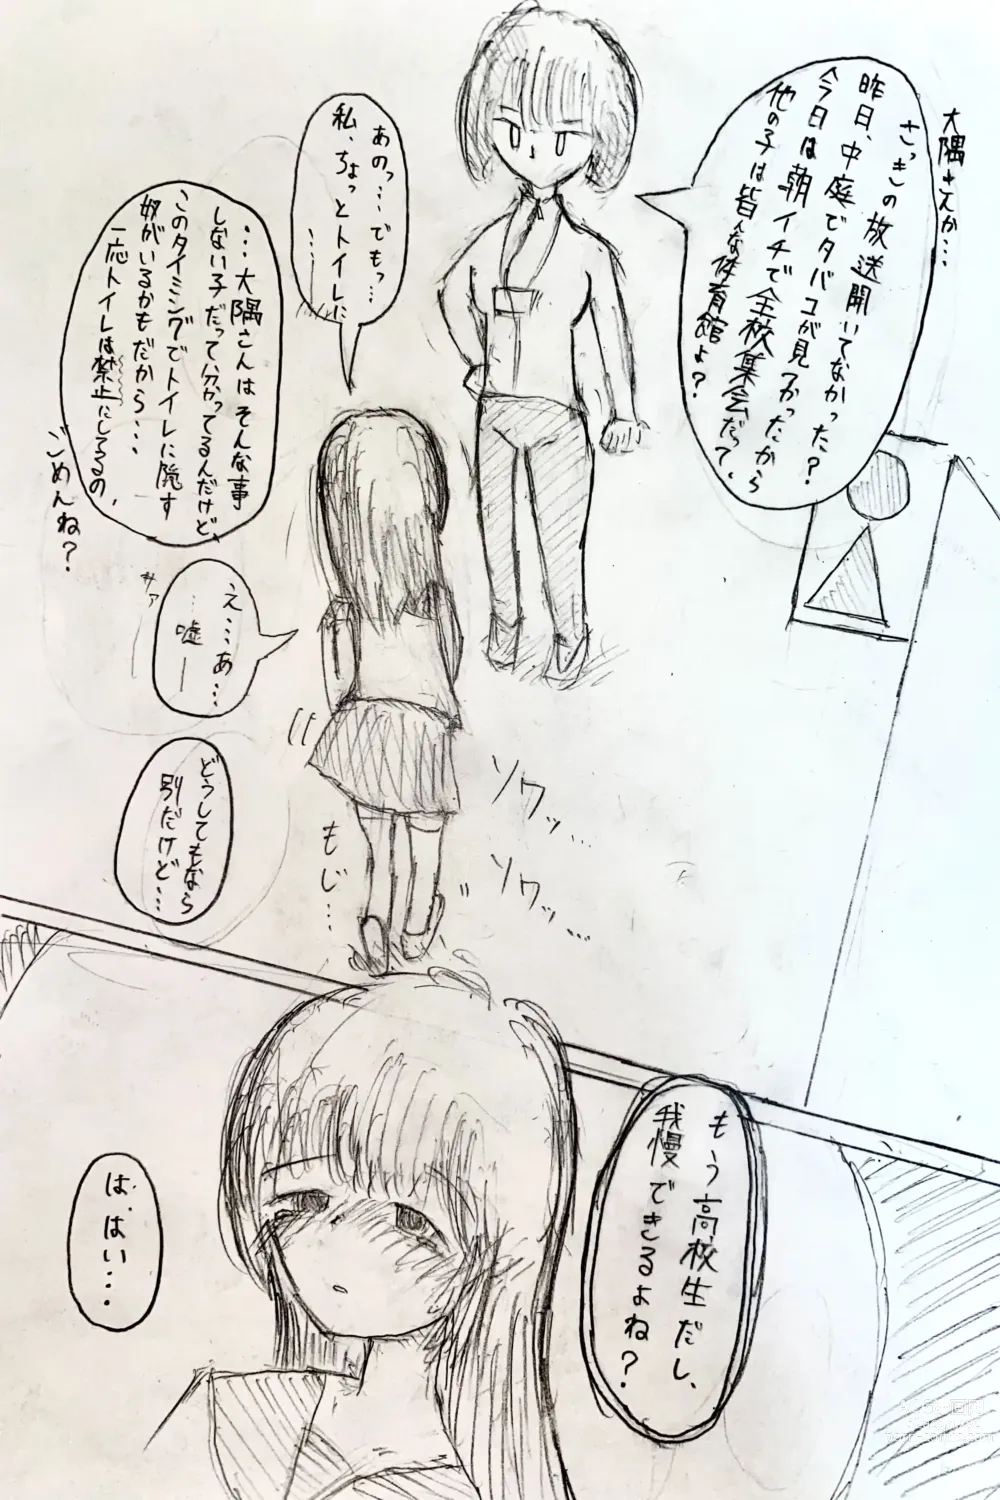 大隅さんか…
さっきの放送聞いてなかった?
昨日、中庭でタバコが見つかったから
今日は朝イチで全校集会だって、
他の子は皆んな体育館よ?
あのっ…でもっ…
私、ちょっとトイレに
…
…大隅さんはそんな事
しない子だって分かってるんだけど、
このタイミングでトイレに隠す
奴がいるかもだから…
一応トイレは禁止にしてるの、
ごめんね?
え…あ…
…嘘―
サァ
どうしてもなら
別だけど…
ソワッ…
ソワッ…
もじ…
もう高校生だし、
我慢できるよね?
は、はい…